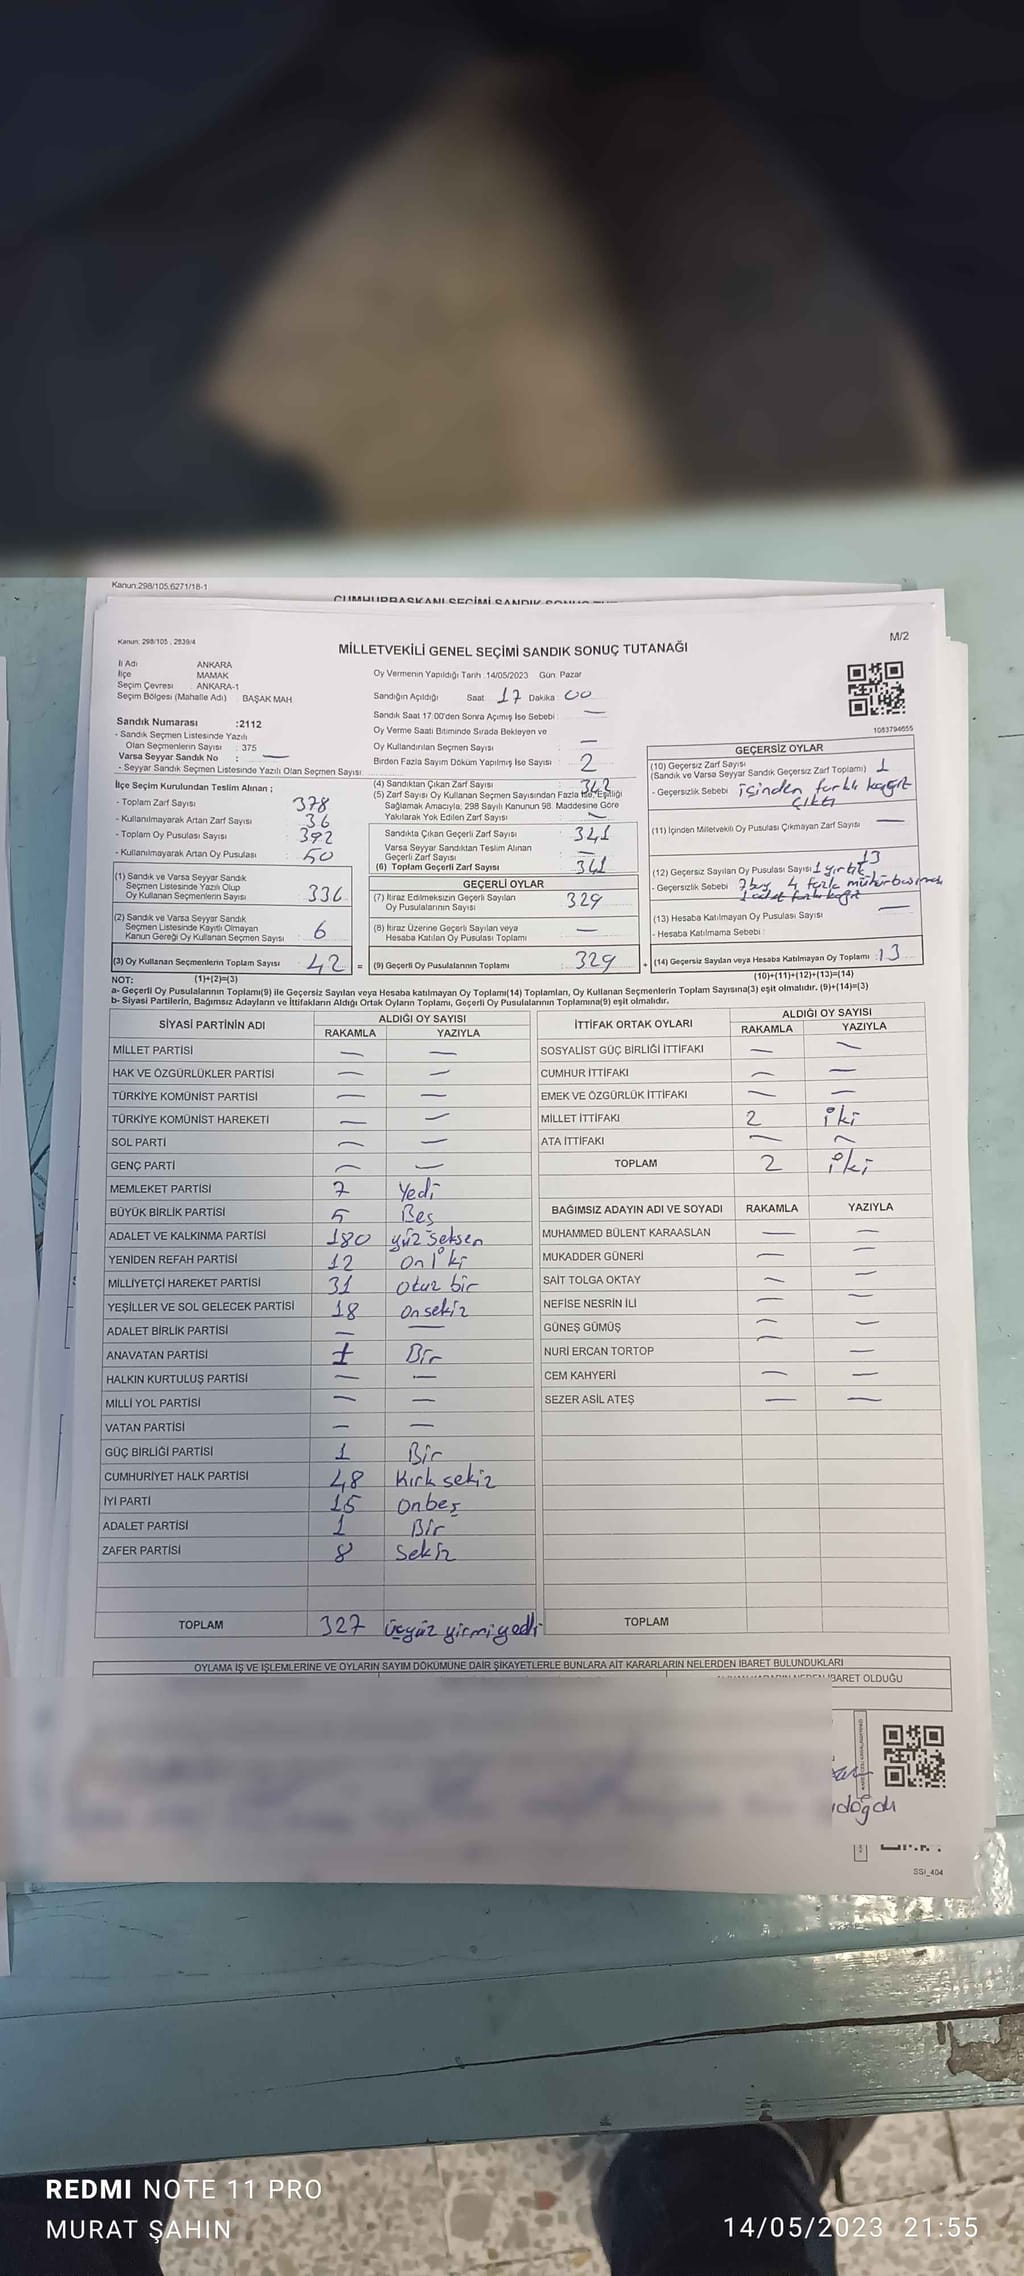 Kanun:298/105.6271/18-1
CUMHURBAŞKANI SEÇİMİ SANDIK
Kanun: 298/105 , 2839/4
M/2
MİLLETVEKİLİ GENEL SEÇİMİ SANDIK SONUÇ TUTANAĞI
İl Adı ANKARA
İlçe MAMAK
Seçim Çevresi ANKARA-1
Seçim Bölgesi (Mahalle Adı) BAŞAK MAH
Oy Vermenin Yapıldığı Tarih :14/05/2023 Gün: Pazar
Sandığın Açıldığı Saat 17 Dakika 00
Sandık Saat 17.00'den Sonra Açımış İse Sebebi : —
Oy Verme Saati Bitiminde Sırada Bekleyen ve
Oy Kullandırılan Seçmen Sayısı : —
Birden Fazla Sayım Döküm Yapılmış İse Sayısı : 2
1083794655
Sandık Numarası :2112
- Sandık Seçmen Listesinde Yazılı
Olan Seçmenlerin Sayısı : 375
Varsa Seyyar Sandık No : —
- Seyyar Sandık Seçmen Listesinde Yazılı Olan Seçmen Sayısı
İlçe Seçim Kurulundan Teslim Alınan ;
- Toplam Zarf Sayısı 378
- Kullanılmayarak Artan Zarf Sayısı 36
- Toplam Oy Pusulası Sayısı : 392
- Kullanılmayarak Artan Oy Pusulası : 50
(1) Sandık ve Varsa Seyyar Sandık
Seçmen Listesinde Yazılı Olup
Oy Kullanan Seçmenlerin Sayısı 336
(2) Sandık ve Varsa Seyyar Sandık
Seçmen Listesinde Kayıtlı Olmayan
Kanun Gereği Oy Kullanan Seçmen Sayısı 6
(3) Oy Kullanan Seçmenlerin Toplam Sayısı : 42 =
(4) Sandıktan Çıkan Zarf Sayısı : 342
(5) Zarf Sayısı Oy Kullanan Seçmen Sayısından Fazla İse, Eşitliği
Sağlamak Amacıyla, 298 Sayılı Kanunun 98. Maddesine Göre
Yakılarak Yok Edilen Zarf Sayısı : —
Sandıkta Çıkan Geçerli Zarf Sayısı : 341
Varsa Seyyar Sandıktan Teslim Alınan
Geçerli Zarf Sayısı : —
(6) Toplam Geçerli Zarf Sayısı : 341
GEÇERLİ OYLAR
(7) İtiraz Edilmeksizin Geçerli Sayılan
Oy Pusulalarının Sayısı : 329
(8) İtiraz Üzerine Geçerli Sayılan veya
Hesaba Katılan Oy Pusulası Toplamı : —
(9) Geçerli Oy Pusulalarının Toplamı : 329 +
GEÇERSİZ OYLAR
(10) Geçersiz Zarf Sayısı
(Sandık ve Varsa Seyyar Sandık Geçersiz Zarf Toplamı) 1
- Geçersizlik Sebebi içinden farklı kağıt
çıktı
(11) İçinden Milletvekili Oy Pusulası Çıkmayan Zarf Sayısı : —
13
(12) Geçersiz Sayılan Oy Pusulası Sayısı 1 yırtık
- Geçersizlik Sebebi 7 boş 4 fazla mühür basılması
1 adet farklı kağıt
(13) Hesaba Katılmayan Oy Pusulası Sayısı : —
- Hesaba Katılmama Sebebi :
(14) Geçersiz Sayılan veya Hesaba Katılmayan Oy Toplamı : 13
NOT: (1)+(2)=(3) (10)+(11)+(12)+(13)=(14)
a- Geçerli Oy Pusulalarının Toplamı(9) ile Geçersiz Sayılan veya Hesaba katılmayan Oy Toplamı(14) Toplamları, Oy Kullanan Seçmenlerin Toplam Sayısına(3) eşit olmalıdır. (9)+(14)=(3)
b- Siyasi Partilerin, Bağımsız Adayların ve İttifakların Aldığı Ortak Oyların Toplamı, Geçerli Oy Pusulalarının Toplamına(9) eşit olmalıdır.
SİYASİ PARTİNİN ADI ALDIĞI OY SAYISI
RAKAMLA YAZIYLA
MİLLET PARTİSİ — —
HAK VE ÖZGÜRLÜKLER PARTİSİ — —
TÜRKİYE KOMÜNİST PARTİSİ — —
TÜRKİYE KOMÜNİST HAREKETİ — —
SOL PARTİ — —
GENÇ PARTİ — —
MEMLEKET PARTİSİ 7 Yedi
BÜYÜK BİRLİK PARTİSİ 5 Beş
ADALET VE KALKINMA PARTİSİ 180 yüz seksen
YENİDEN REFAH PARTİSİ 12 on iki
MİLLİYETÇİ HAREKET PARTİSİ 31 otuz bir
YEŞİLLER VE SOL GELECEK PARTİSİ 18 onsekiz
ADALET BİRLİK PARTİSİ — —
ANAVATAN PARTİSİ 1 Bir
HALKIN KURTULUŞ PARTİSİ — —
MİLLİ YOL PARTİSİ — —
VATAN PARTİSİ — —
GÜÇ BİRLİĞİ PARTİSİ 1 Bir
CUMHURİYET HALK PARTİSİ 48 Kırk sekiz
İYİ PARTİ 15 onbeş
ADALET PARTİSİ 1 Bir
ZAFER PARTİSİ 8 sekiz
TOPLAM 327 üçyüz yirmi yedi
İTTİFAK ORTAK OYLARI ALDIĞI OY SAYISI
RAKAMLA YAZIYLA
SOSYALİST GÜÇ BİRLİĞİ İTTİFAKI — —
CUMHUR İTTİFAKI — —
EMEK VE ÖZGÜRLÜK İTTİFAKI — —
MİLLET İTTİFAKI 2 iki
ATA İTTİFAKI — —
TOPLAM 2 iki
BAĞIMSIZ ADAYIN ADI VE SOYADI RAKAMLA YAZIYLA
MUHAMMED BÜLENT KARAASLAN — —
MUKADDER GÜNERİ — —
SAİT TOLGA OKTAY — —
NEFİSE NESRİN İLİ — —
GÜNEŞ GÜMÜŞ — —
NURİ ERCAN TORTOP — —
CEM KAHYERİ — —
SEZER ASİL ATEŞ — —
TOPLAM
OYLAMA İŞ VE İŞLEMLERİNE VE OYLARIN SAYIM DÖKÜMÜNE DAİR ŞİKAYETLERLE BUNLARA AİT KARARLARIN NELERDEN İBARET BULUNDUKLARI
NEDEN İBARET OLDUĞU
SSI_404
REDMI NOTE 11 PRO
MURAT ŞAHIN
14/05/2023 21:55